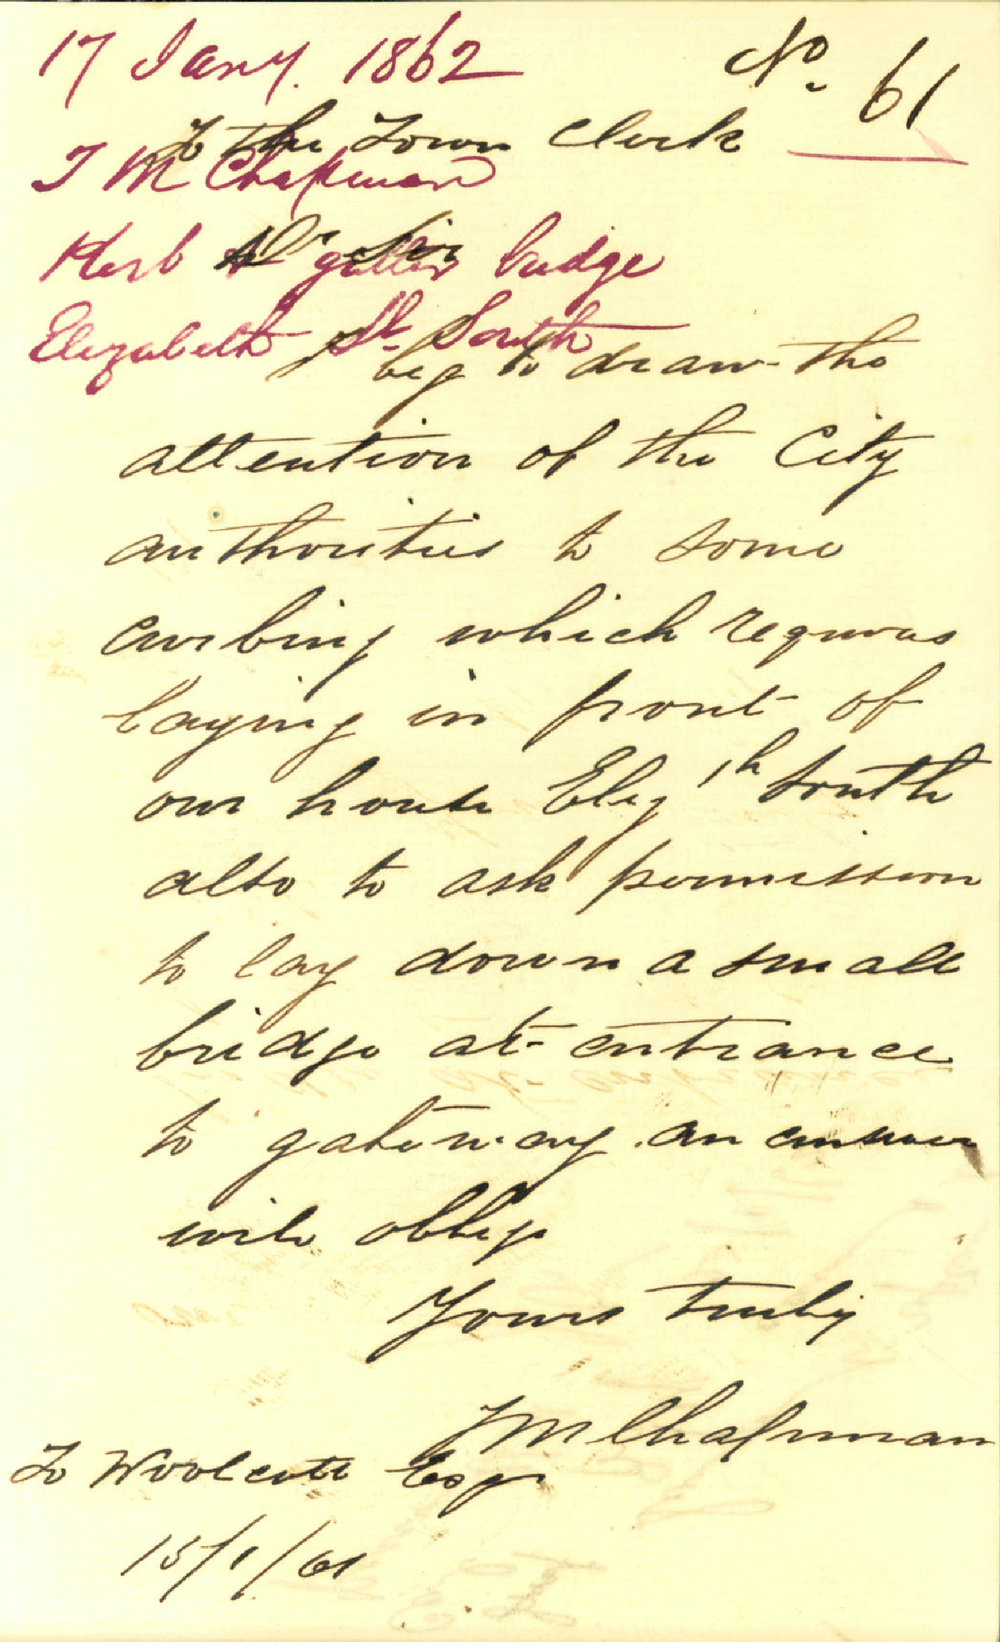 17 Jany. 1862
No. 61
To the Town Clerk
T M Chapman
Dr Sir
Kerb & gutter bridge
Elizabeth St. South
I beg to draw the
attention of the City
authorities to some
curbing which requires
laying in front of
our house Elizth South
also to ask permission
to lay down a small
bridge at entrance
to gateway. an answer
will oblige
Yours truly
T M Chapman
To Woolcott Esqr
15/1/61